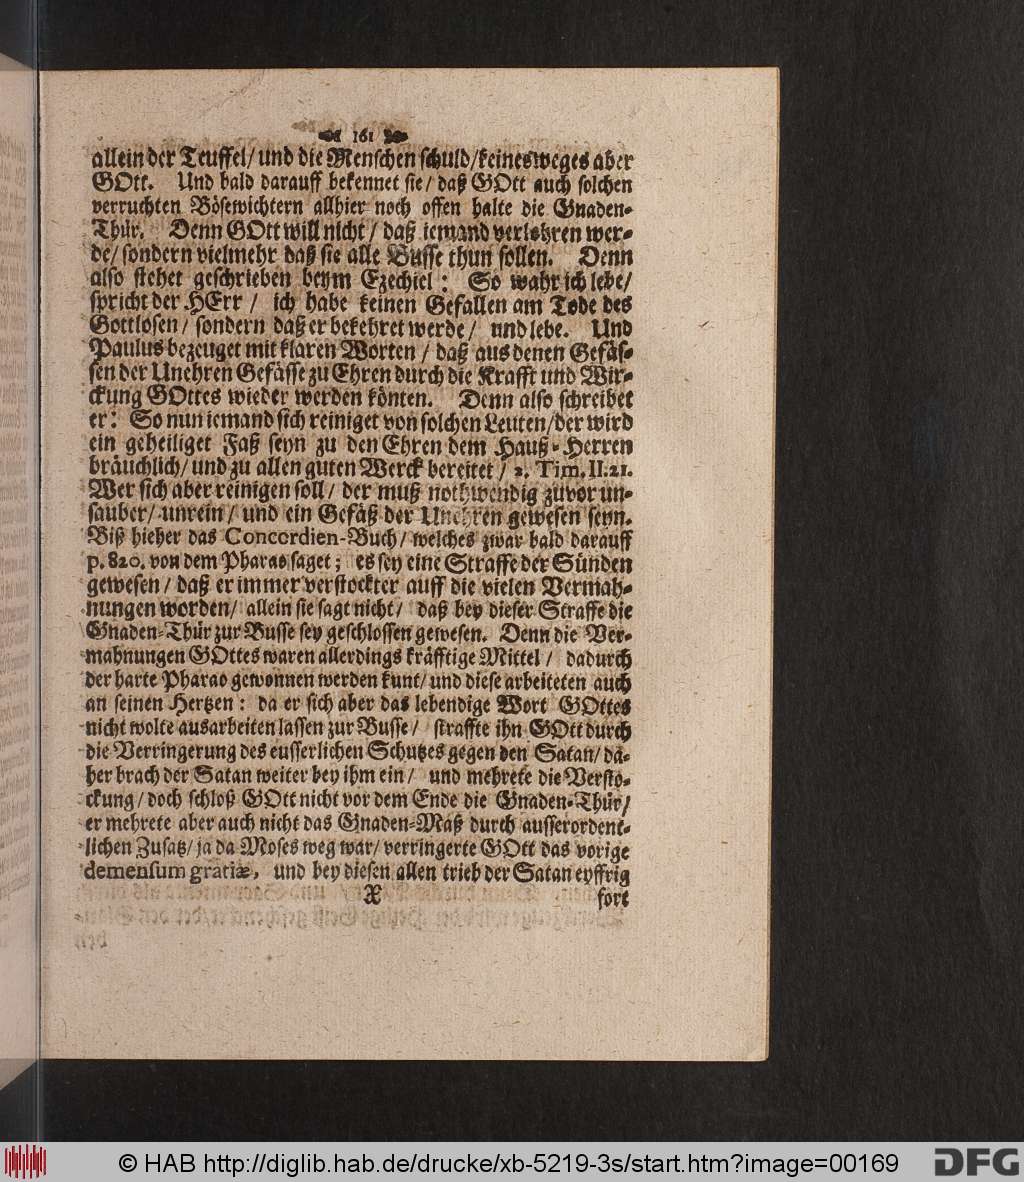 161
allein der Teuffel/ und die Menschen schuld/ keinesweges aber
GOtt. Und bald darauff bekennet sie/ daß GOtt auch solchen
verruchten Bösewichtern allhier noch offen halte die Gnaden-
Thür. Denn GOtt will nicht/ daß iemand verlohren wer-
de/ sondern vielmehr daß sie alle Busse thun sollen. Denn
also stehet geschrieben beym Ezechiel: So wahr ich lebe/
spricht der HErr/ ich habe keinen Gefallen am Tode des
Gottlosen/ sondern daß er bekehret werde/ und lebe. Und
Paulus bezeuget mit klaren Worten/ daß aus denen Gefäs-
sen der Unehren Gefässe zu Ehren durch die Krafft und Wir-
ckung GOttes wieder werden könten. Denn also schreibet
er: So nun iemand sich reiniget von solchen Leuten/ der wird
ein geheiliget Faß seyn zu den Ehren dem Hauß-Herren
bräuchlich/ und zu allen guten Werck bereitet/ 2. Tim. II. 21.
Wer sich aber reinigen soll/ der muß nothwendig zuvor un-
sauber/ unrein/ und ein Gefäß der Unehren gewesen seyn.
Biß hieher das Concordien-Buch/ welches zwar bald darauff
p. 820. von dem Pharao saget; es sey eine Straffe der Sünden
gewesen/ daß er immer verstockter auff die vielen Vermah-
nungen worden/ allein sie sagt nicht/ daß bey dieser Straffe die
Gnaden-Thür zur Busse sey geschlossen gewesen. Denn die Ver-
mahnungen GOttes waren allerdings kräfftige Mittel/ dadurch
der harte Pharao gewonnen werden kunt/ und diese arbeiteten auch
an seinen Hertzen: da er sich aber das lebendige Wort GOttes
nicht wolte ausarbeiten lassen zur Busse/ straffte ihn GOtt durch
die Verringerung des eusserlichen Schutzes gegen den Satan/ da-
her brach der Satan weiter bey ihm ein/ und mehrete die Versto-
ckung/ doch schloß GOtt nicht vor dem Ende die Gnaden-Thür/
er mehrete aber auch nicht das Gnaden-Maß durch ausserordent-
lichen Zusatz/ ja da Moses weg war/ verringerte GOtt das vorige
demensum gratiæ, und bey diesen allen trieb der Satan eyffrig
X fort
© HAB http://diglib.hab.de/drucke/xb-5219-3s/start.htm?image=00169
DFG